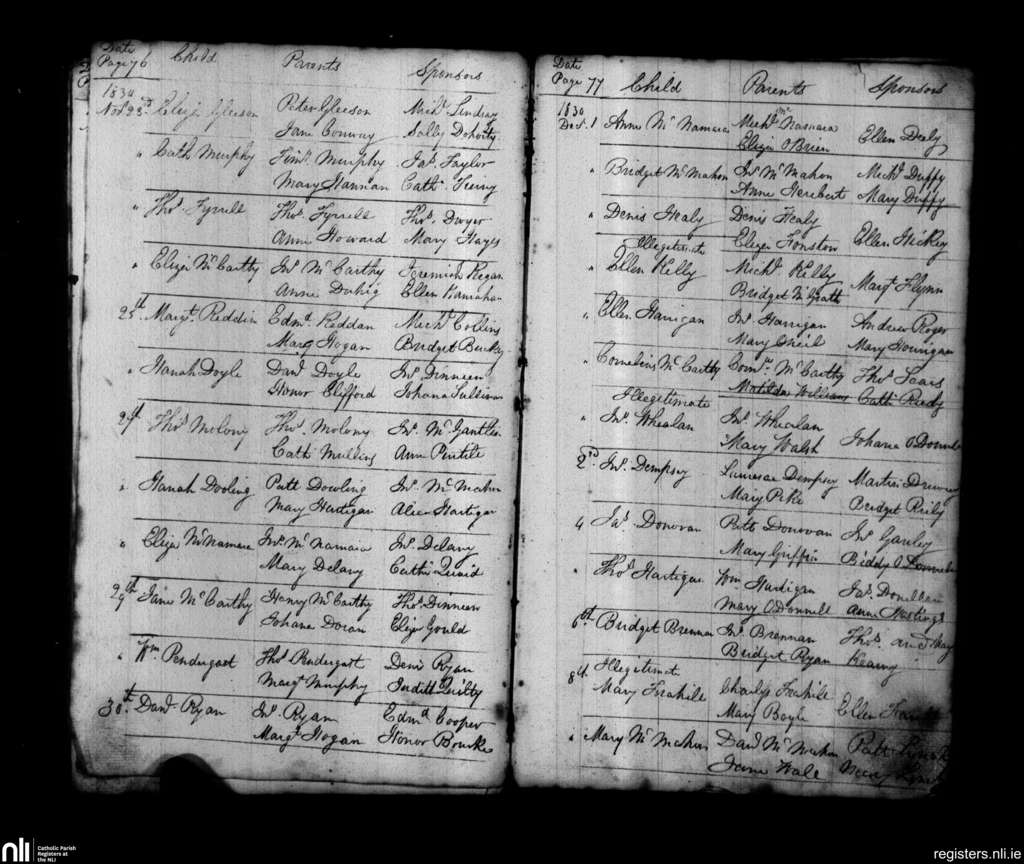 Date
Page 76 Child Parents Sponsors
1830
Novr 23rd Eliza Gleeson Peter Gleeson Michl Lindsay
Jane Conway Sally Doherty
" Cath Murphy Timy Murphy Jas Taylor
Mary Hannan Cath
" Thos Tyrrell Thos Tyrrell Thos Dwyer
Anne Howard Mary Hayes
" Eliza McCarthy Jno McCarthy Jeremiah Regan
Anne Duhig Ellen
25th Margt Reddin Edmd Reddan Michl Collins
Marg Hogan Bridget
" Hanah Doyle Danl Doyle Jno Dinneen
Honor Clifford Johana Sullivan
27th Thos Molony Thos Molony Jno
Cath Mullins Ann
" Hanah Dooling Patt Dowling Jno McMahon
Mary Hartigan Alice Hartigan
" Eliza McNamara Jno McNamara Jno Delany
Mary Delany Cath Quaid
29th Jane McCarthy Henry McCarthy Thos Dinneen
Johana Doran Eliza Gould
" Wm Pendergast Thos Pendergast Denis Ryan
Margt Murphy Judith Guilty
30th Danl Ryan Jno Ryan Edmd Cooper
Margt Hogan Honor Bourke
Date
Page 77 Child Parents Sponsors
1830
Decr 1 Anne McNamara Michl McNamara Ellen Dealy
Eliza OBrien
" Bridget McMahon Jno McMahon Michl Duffy
Anne Herebert Mary Duffy
" Denis Healy Denis Healy
Illegitimate Eliza Ellen Hickey
" Ellen Kelly Michl Kelly Margt Flynn
Bridget McGrath
" Ellen Harrigan Jno Harrigan Andrew Roger
Mary Sheil Mary Hourigan
" Cornelius McCarthy Corns McCarthy Thos Sears
Illegitimate Matilda Williams Cath Reidy
" Jno Whealan Jno Whealan Johana ODonnell
Mary Walsh
2nd Jno Dempsey Lawrence Dempsey Martin
Mary Pike Bridget Reily
4 Jas Donovan Patt Donovan Jno Ganley
Mary Griffin Biddy
" Thos Hartigan Wm Hartigan Jas Donellan
Mary ODonnell Anne Hastings
6th Bridget Brennan Jno Brennan Thos and Mary
Bridget Ryan Kearny
8th Illegitimate
Mary Frahile Charles Frahile Ellen
Mary Boyle
" Mary McMahon Danl McMahon Patt
Jane Wale Mary
nli Catholic Parish
Registers at
the NLI
registers.nli.ie